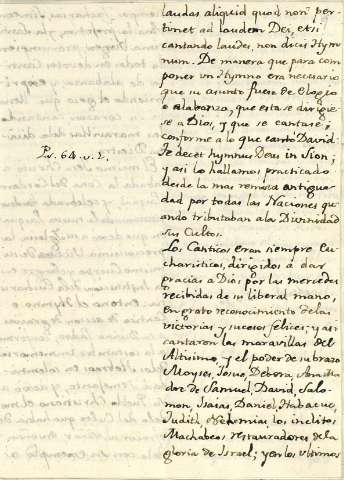 laudas aliquid quod non per-
tinet ad laudem Dei, etsi
cantando laudes, non dicis Hym-
num. De manera que para com-
poner un Hymno era necesario
que su asunto fuese de Elogio
o alabanza, que esta se dirigie-
se a Dios, y que se cantase;
conforme a lo que cantò David:
Ps. 64. v. 2.
Te decet hymnus Deus in Sion;
y asi lo hallamos practicado
desde la mas remota antigue-
dad por todas las Naciones qu-
ando tributaban a la Divinidad
sus Cultos.
Los Canticos eran siempre Eu-
charisticos, dirigidos à dar
gracias a Dios por las mercedes
recibidas de su liberal mano,
en grato reconocimiento de las
victorias y sucesos felices; y asi
cantaron las maravillas del
Altisimo, y el poder de su brazo
Moyses, Josue, Debora, la ma-
dre de Samuel, David, Salo-
mon, Isaias, Daniel, Habacuc,
Judith, Nehemias, los inclitos
Machabeos restauradores de la
gloria de Israel; y en los ultimos